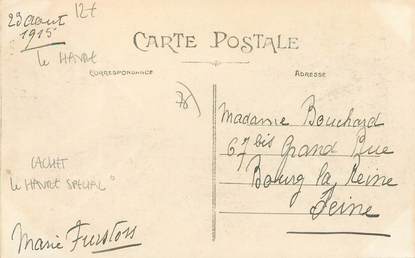 23 Aout 12t
1915
le HAVRE
CARTE POSTALE
CORRESPONDANCE
ADRESSE
76)
Madame Bouchard
67 bis Grand Rue
Bourg la Reine
Seine
CACHET
"le HAVRE SPECIAL"
Marie